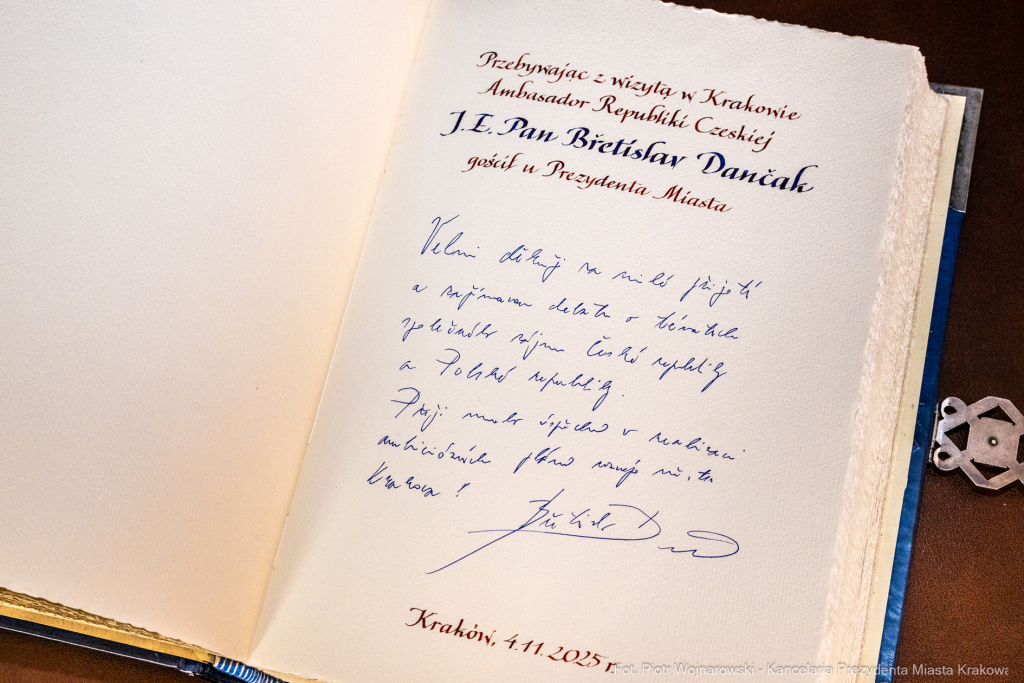 Przebywając z wizytą w Krakowie
Ambasador Republiki Czeskiej
J.E. Pan Břetislav Dančak
gościł u Prezydenta Miasta
Velmi děkuji za milé přijetí
a zajímavou debatu o tématech
společného zájmu České republiky
a Polské republiky.
Přeji mnoho úspěchů v realizaci
ambiciózních plánů rozvoje města
Krakova!
Kraków, 4.11.2025 r.
Fot. Piotr Wojnarowski - Kancelaria Prezydenta Miasta Krakowa